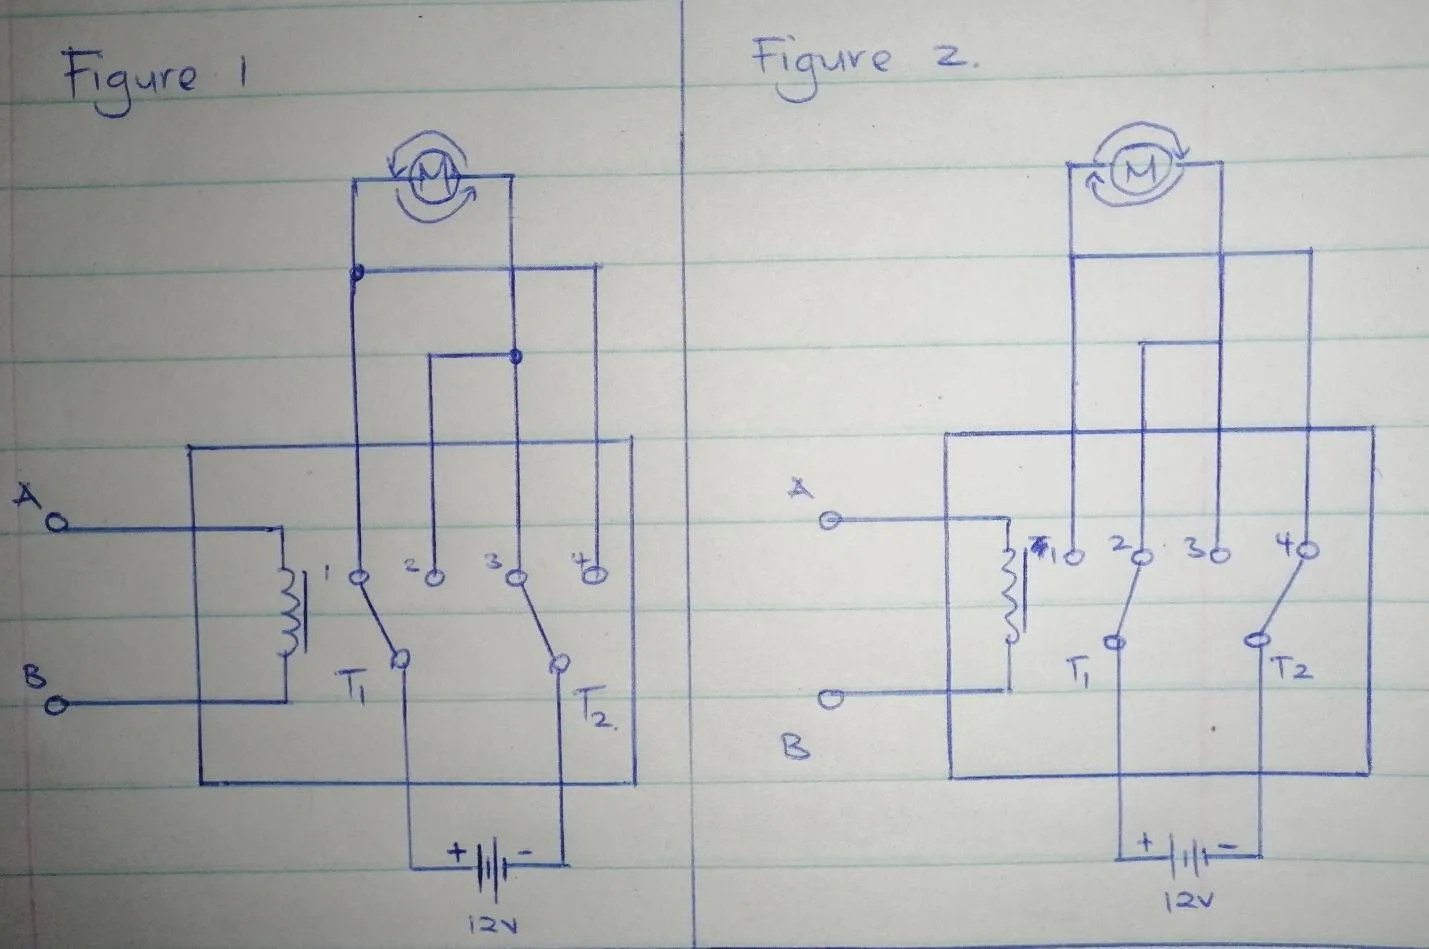 Figure 1
M
A
1 2 3 4
B
T1
T2.
+ -
12V
Figure 2.
M
A
1 2 3 4
T1 T2
B
+ -
12V